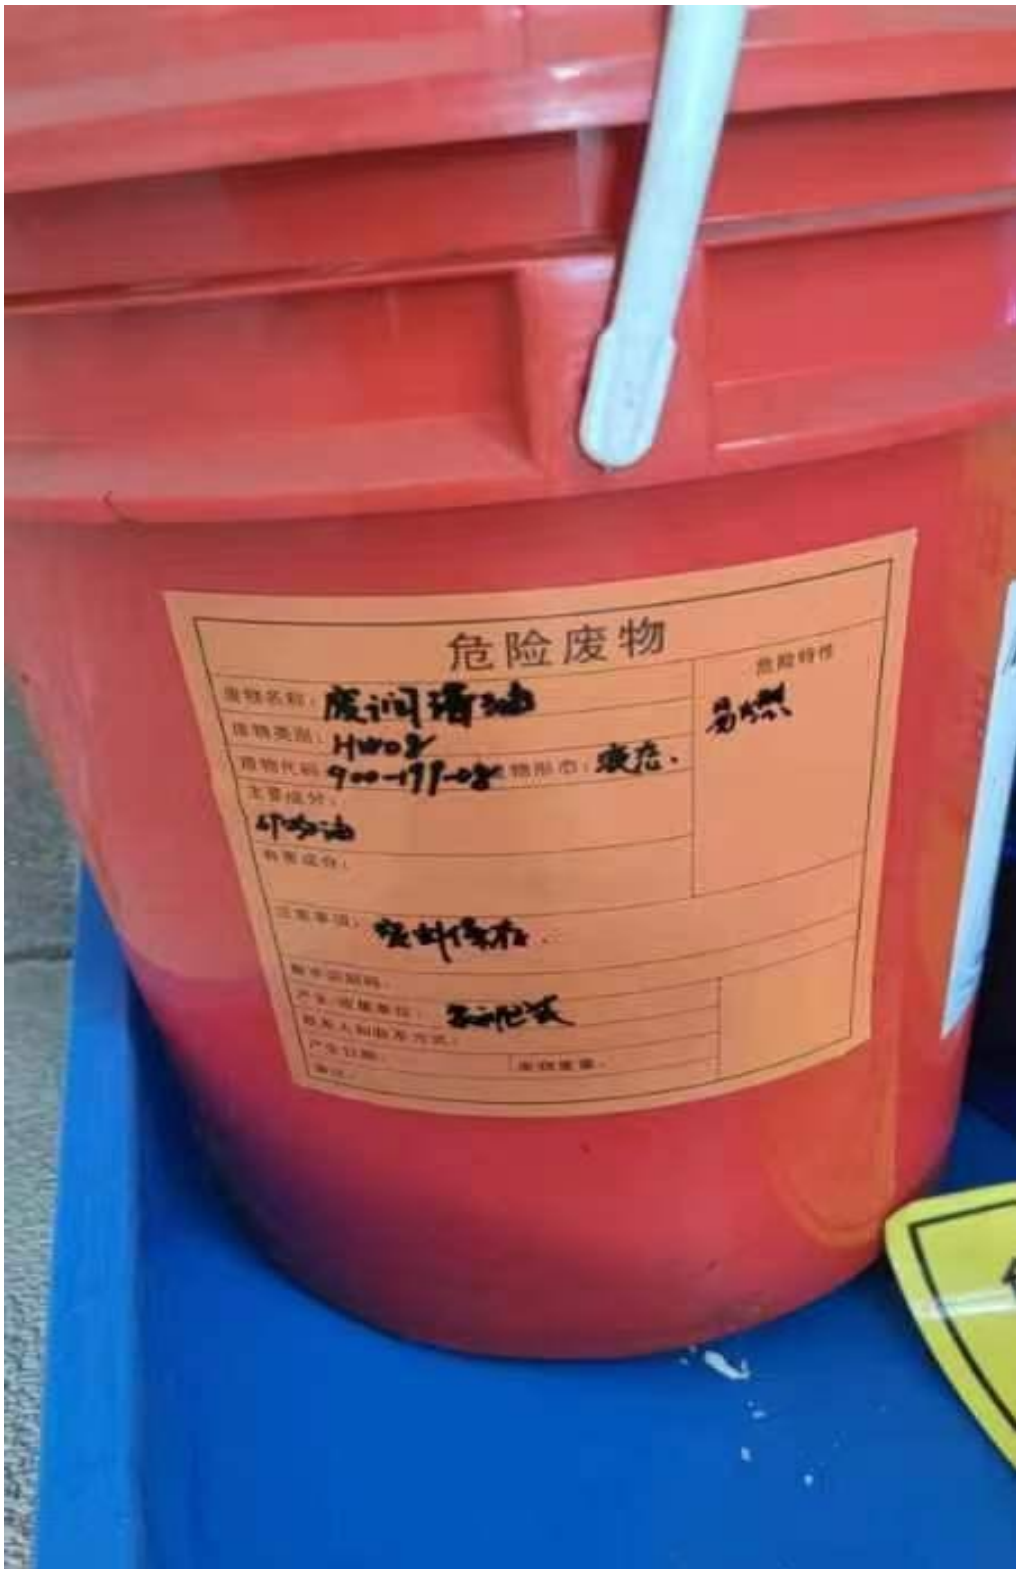 危险废物
危险特性
废物名称：废润滑油
易燃
废物类别：HW08
废物代码：900-199-08 物形态：液态.
主要成分：
矿物油
有害成分：
注意事项：
数字识别码：
产生/收集单位：
联系人和联系方式：
产生日期：
废物重量：
备注：